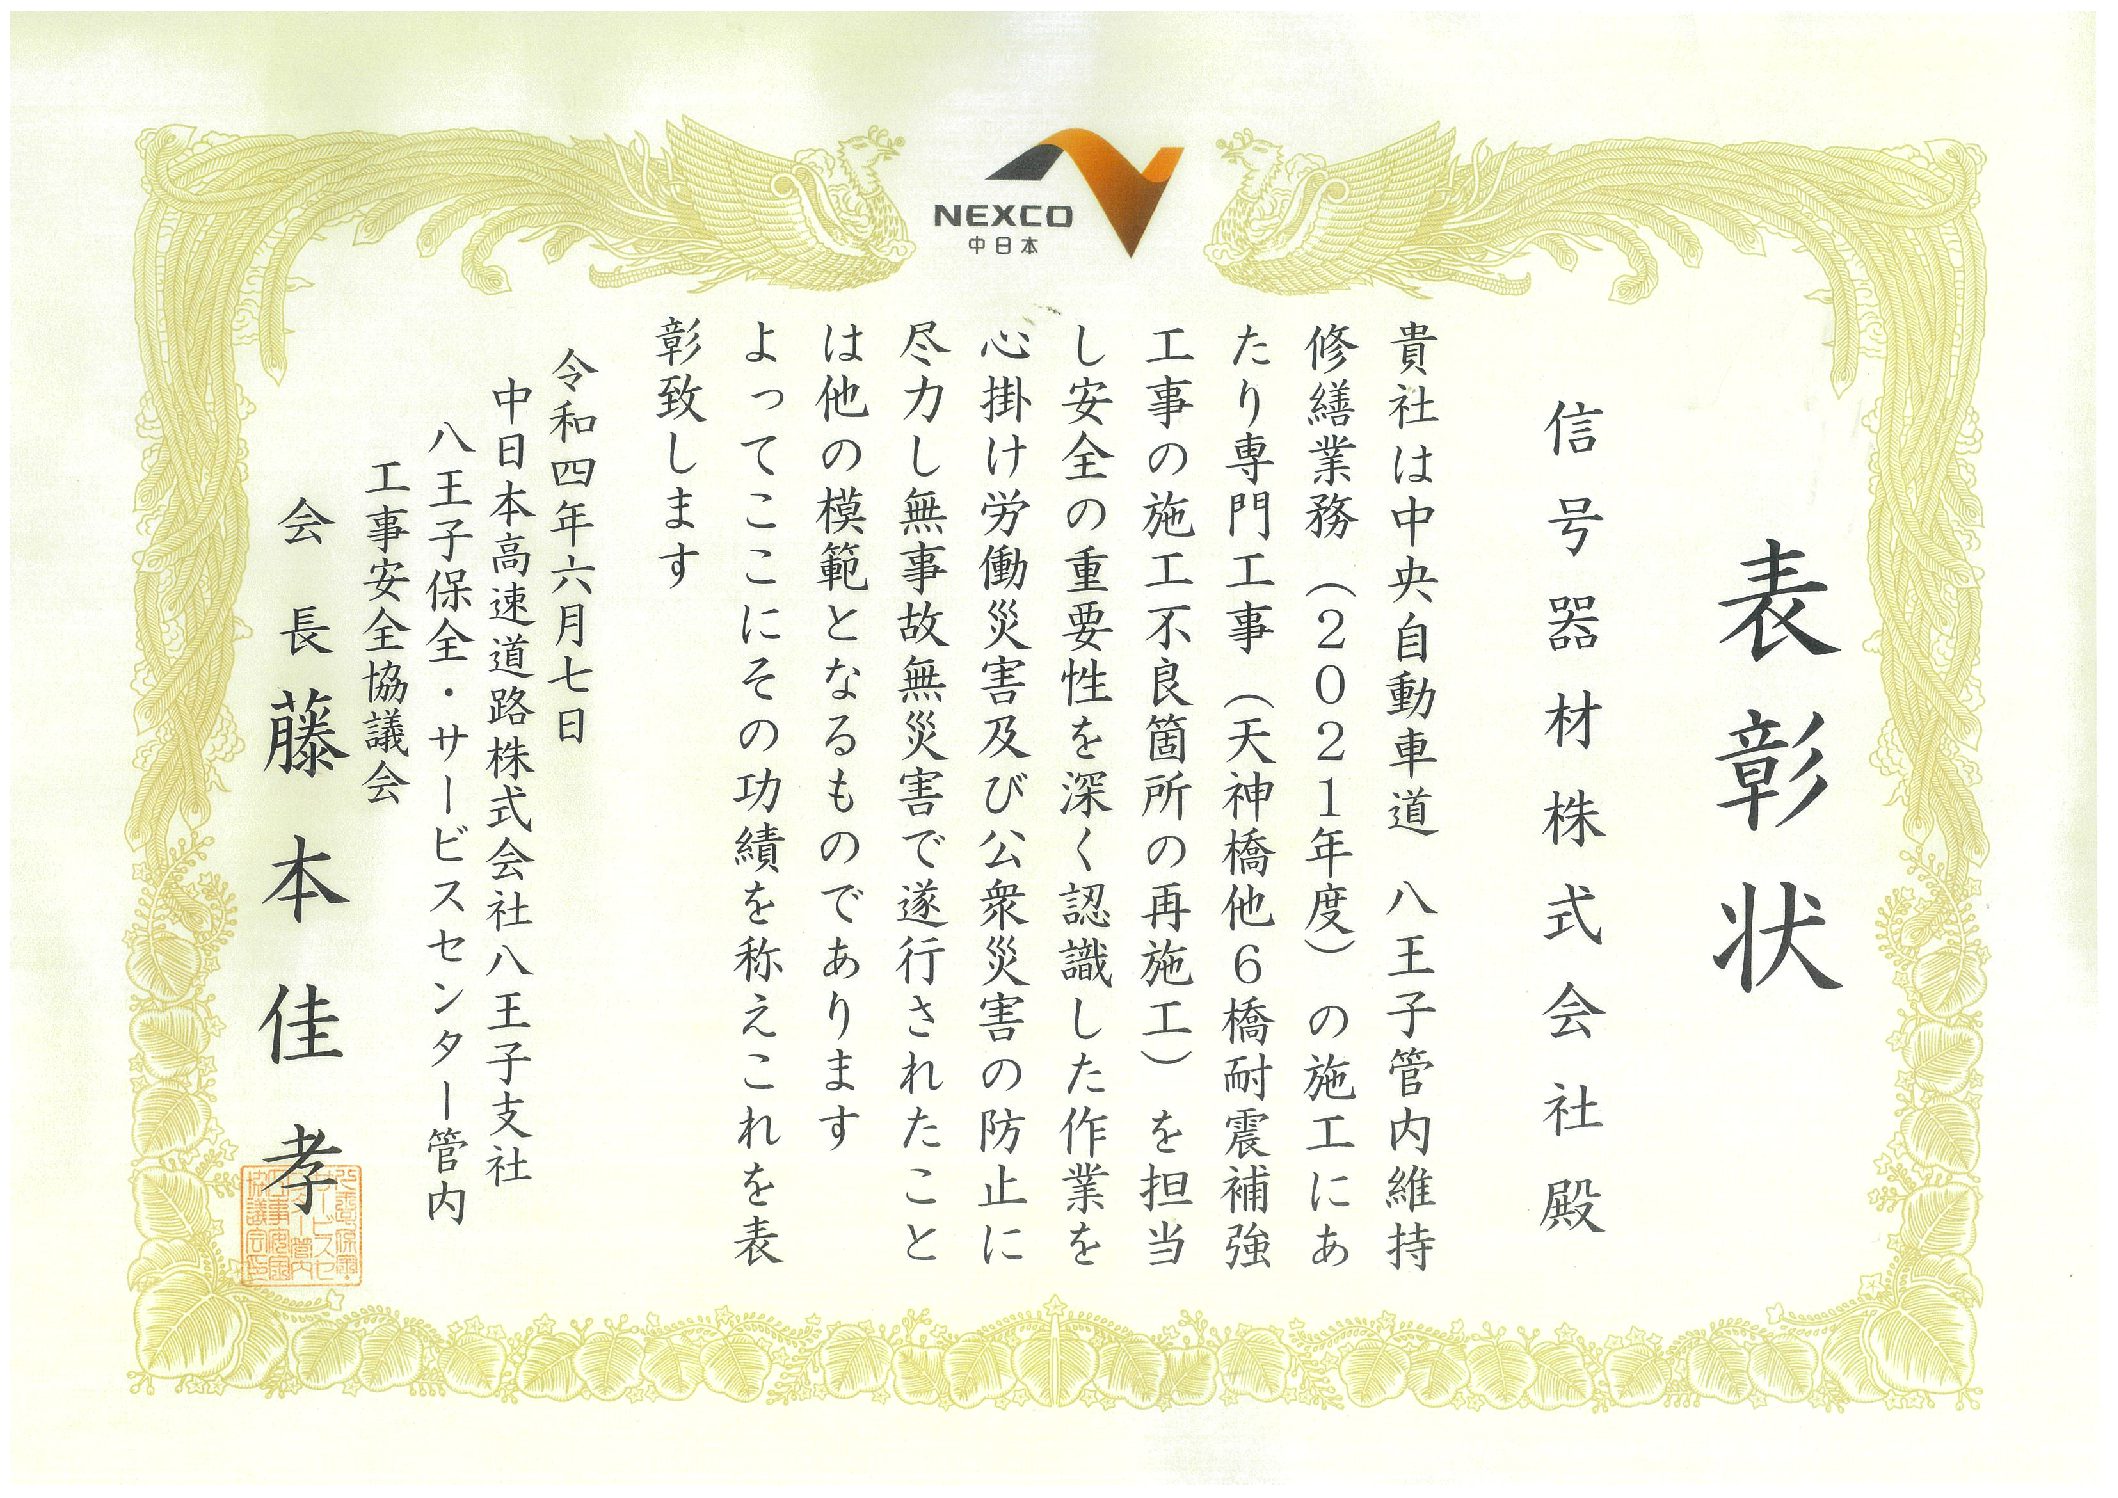 NEXCO
中日本
表彰状
信号器材株式会社殿
貴社は中央自動車道 八王子管内維持
修繕業務（2021年度）の施工にあ
たり専門工事（天神橋他6橋耐震補強
工事の施工不良箇所の再施工）を担当
し安全の重要性を深く認識した作業を
心掛け労働災害及び公衆災害の防止に
尽力し無事故無災害で遂行されたこと
は他の模範となるものであります
よってここにその功績を称えこれを表
彰致します
令和四年六月七日
中日本高速道路株式会社八王子支社
八王子保全・サービスセンター管内
工事安全協議会
会長藤本佳孝